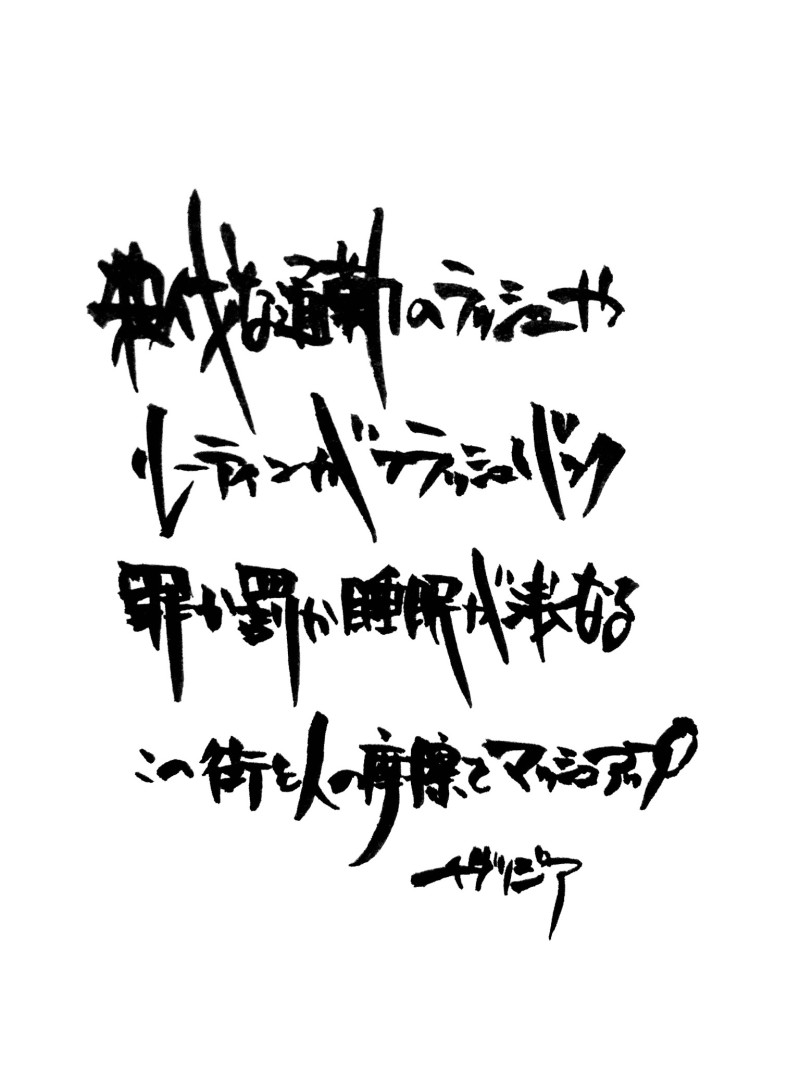 殺伐な通勤のラッシュや
ルーティンがフラッシュバック
罪か罰か睡眠が浅くなる
この街を人の摩擦とマッシュアップ